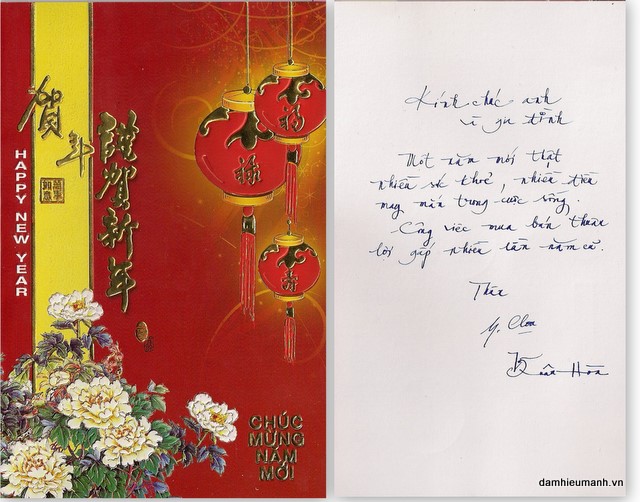 賀年
HAPPY NEW YEAR
謹賀新年
福
祿
壽
CHÚC
MỪNG
NĂM
MỚI
Kính chúc anh
và gia đình
Một năm mới thật
nhiều sức khoẻ, nhiều tiền
may mắn trong cuộc sống.
Công việc mua bán thuận
lợi gấp nhiều lần năm cũ.
Thân
Hòa
damhieumanh.vn